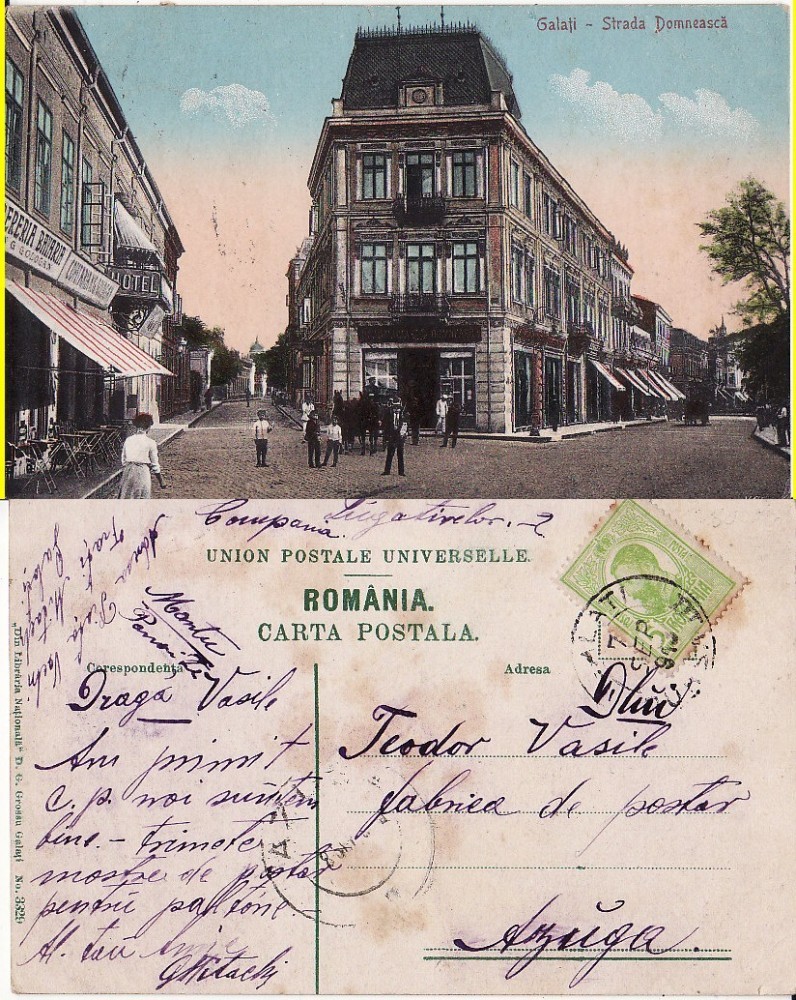 Galați - Strada Domnească
G. GOLOGAN
HOTEL
Compania
UNION POSTALE UNIVERSELLE.
ROMÂNIA.
CARTA POSTALA.
Corespondența
Adresa
Draga Vasile
Am primit
c. p. noi suntem
bine. - trimete
mostre de postav
pentru paltone.
Al. tau amic
Dlui
Teodor Vasile
fabrica de postav
Azuga.
„Din Librăria Națională" D. G. Grossu Galați No. 3329